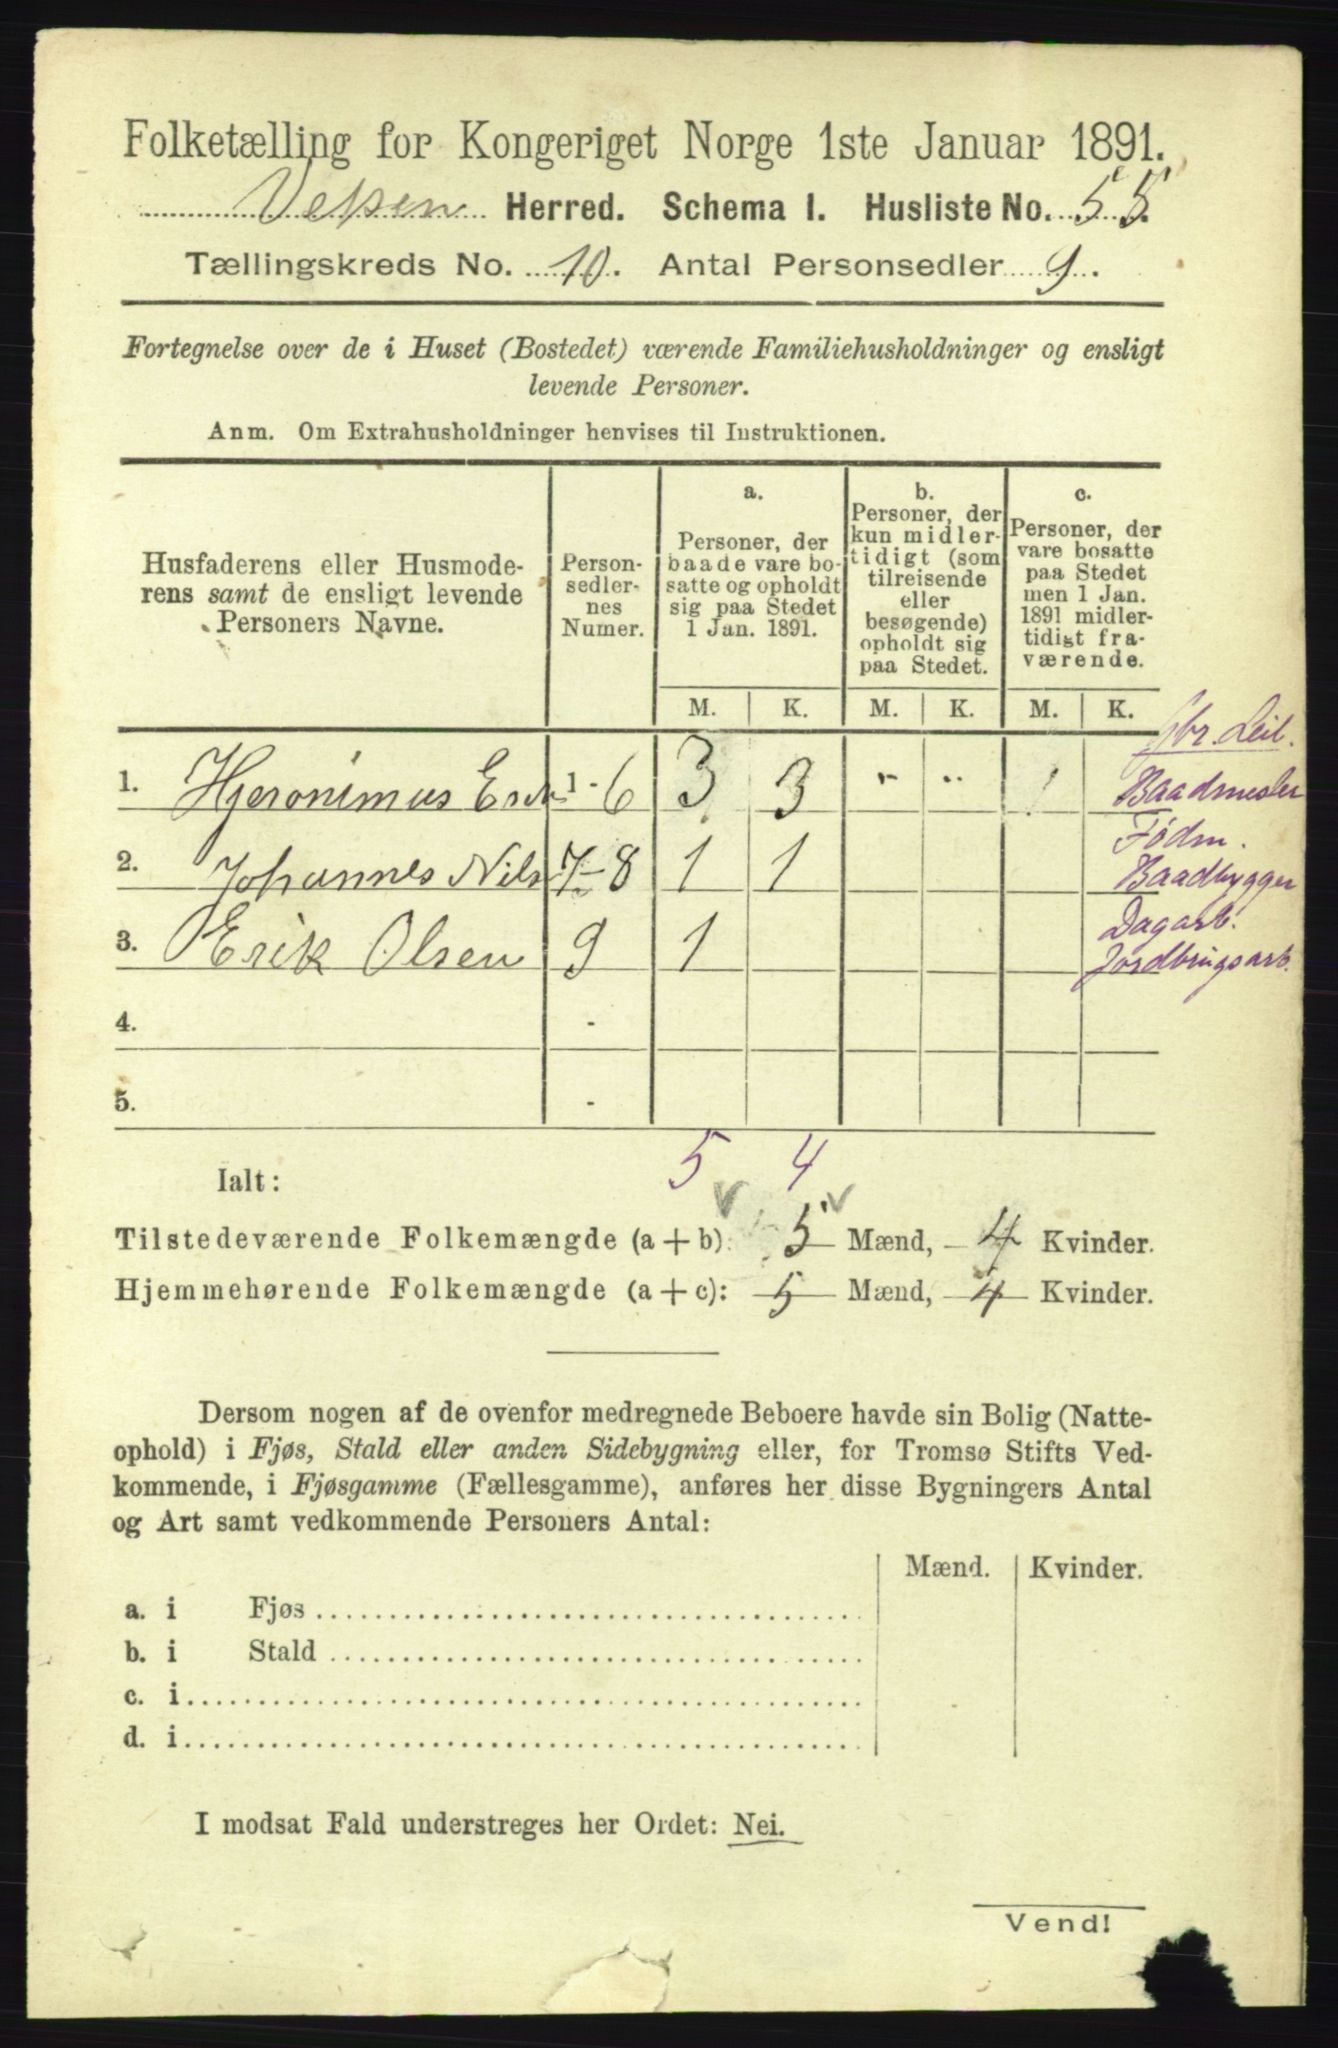 Folketælling for Kongeriget Norge 1ste Januar 1891.
Vefsen Herred. Schema I. Husliste No. 55.
Tællingskreds No. 10. Antal Personsedler 9.
Fortegnelse over de i Huset (Bostedet) værende Familiehusholdninger og ensligt
levende Personer.
Anm. Om Extrahusholdninger henvises til Instruktionen.
Husfaderens eller Husmode-
rens samt de ensligt levende
Personers Navne.
Person-
sedler-
nes
Numer.
a.
Personer, der
baade vare bo-
satte og opholdt
sig paa Stedet
1 Jan. 1891.
b.
Personer, der
kun midler-
tidigt (som
tilreisende
eller
besøgende)
opholdt sig
paa Stedet.
c.
Personer, der
vare bosatte
paa Stedet
men 1 Jan.
1891 midler-
tidigt fra-
værende.
M. K. M. K. M. K.
Gbr. Leil.
1. Hjeronimus 1-6 3 3 Baadmester
Fødm.
2. Johannes Nils 7-8 1 1 Baadbygger
Dagarb.
3. Erik Olsen 9 1 Jordbrugsarb.
4. -
5. -
Ialt: 5 4
Tilstedeværende Folkemængde (a + b): 5 Mænd, 4 Kvinder.
Hjemmehørende Folkemængde (a + c): 5 Mænd, 4 Kvinder.
Dersom nogen af de ovenfor medregnede Beboere havde sin Bolig (Natte-
ophold) i Fjøs, Stald eller anden Sidebygning eller, for Tromsø Stifts Ved-
kommende, i Fjøsgamme (Fællesgamme), anføres her disse Bygningers Antal
og Art samt vedkommende Personers Antal:
Mænd. Kvinder.
a. i Fjøs
b. i Stald
c. i
d. i
I modsat Fald understreges her Ordet: Nei.
Vend!